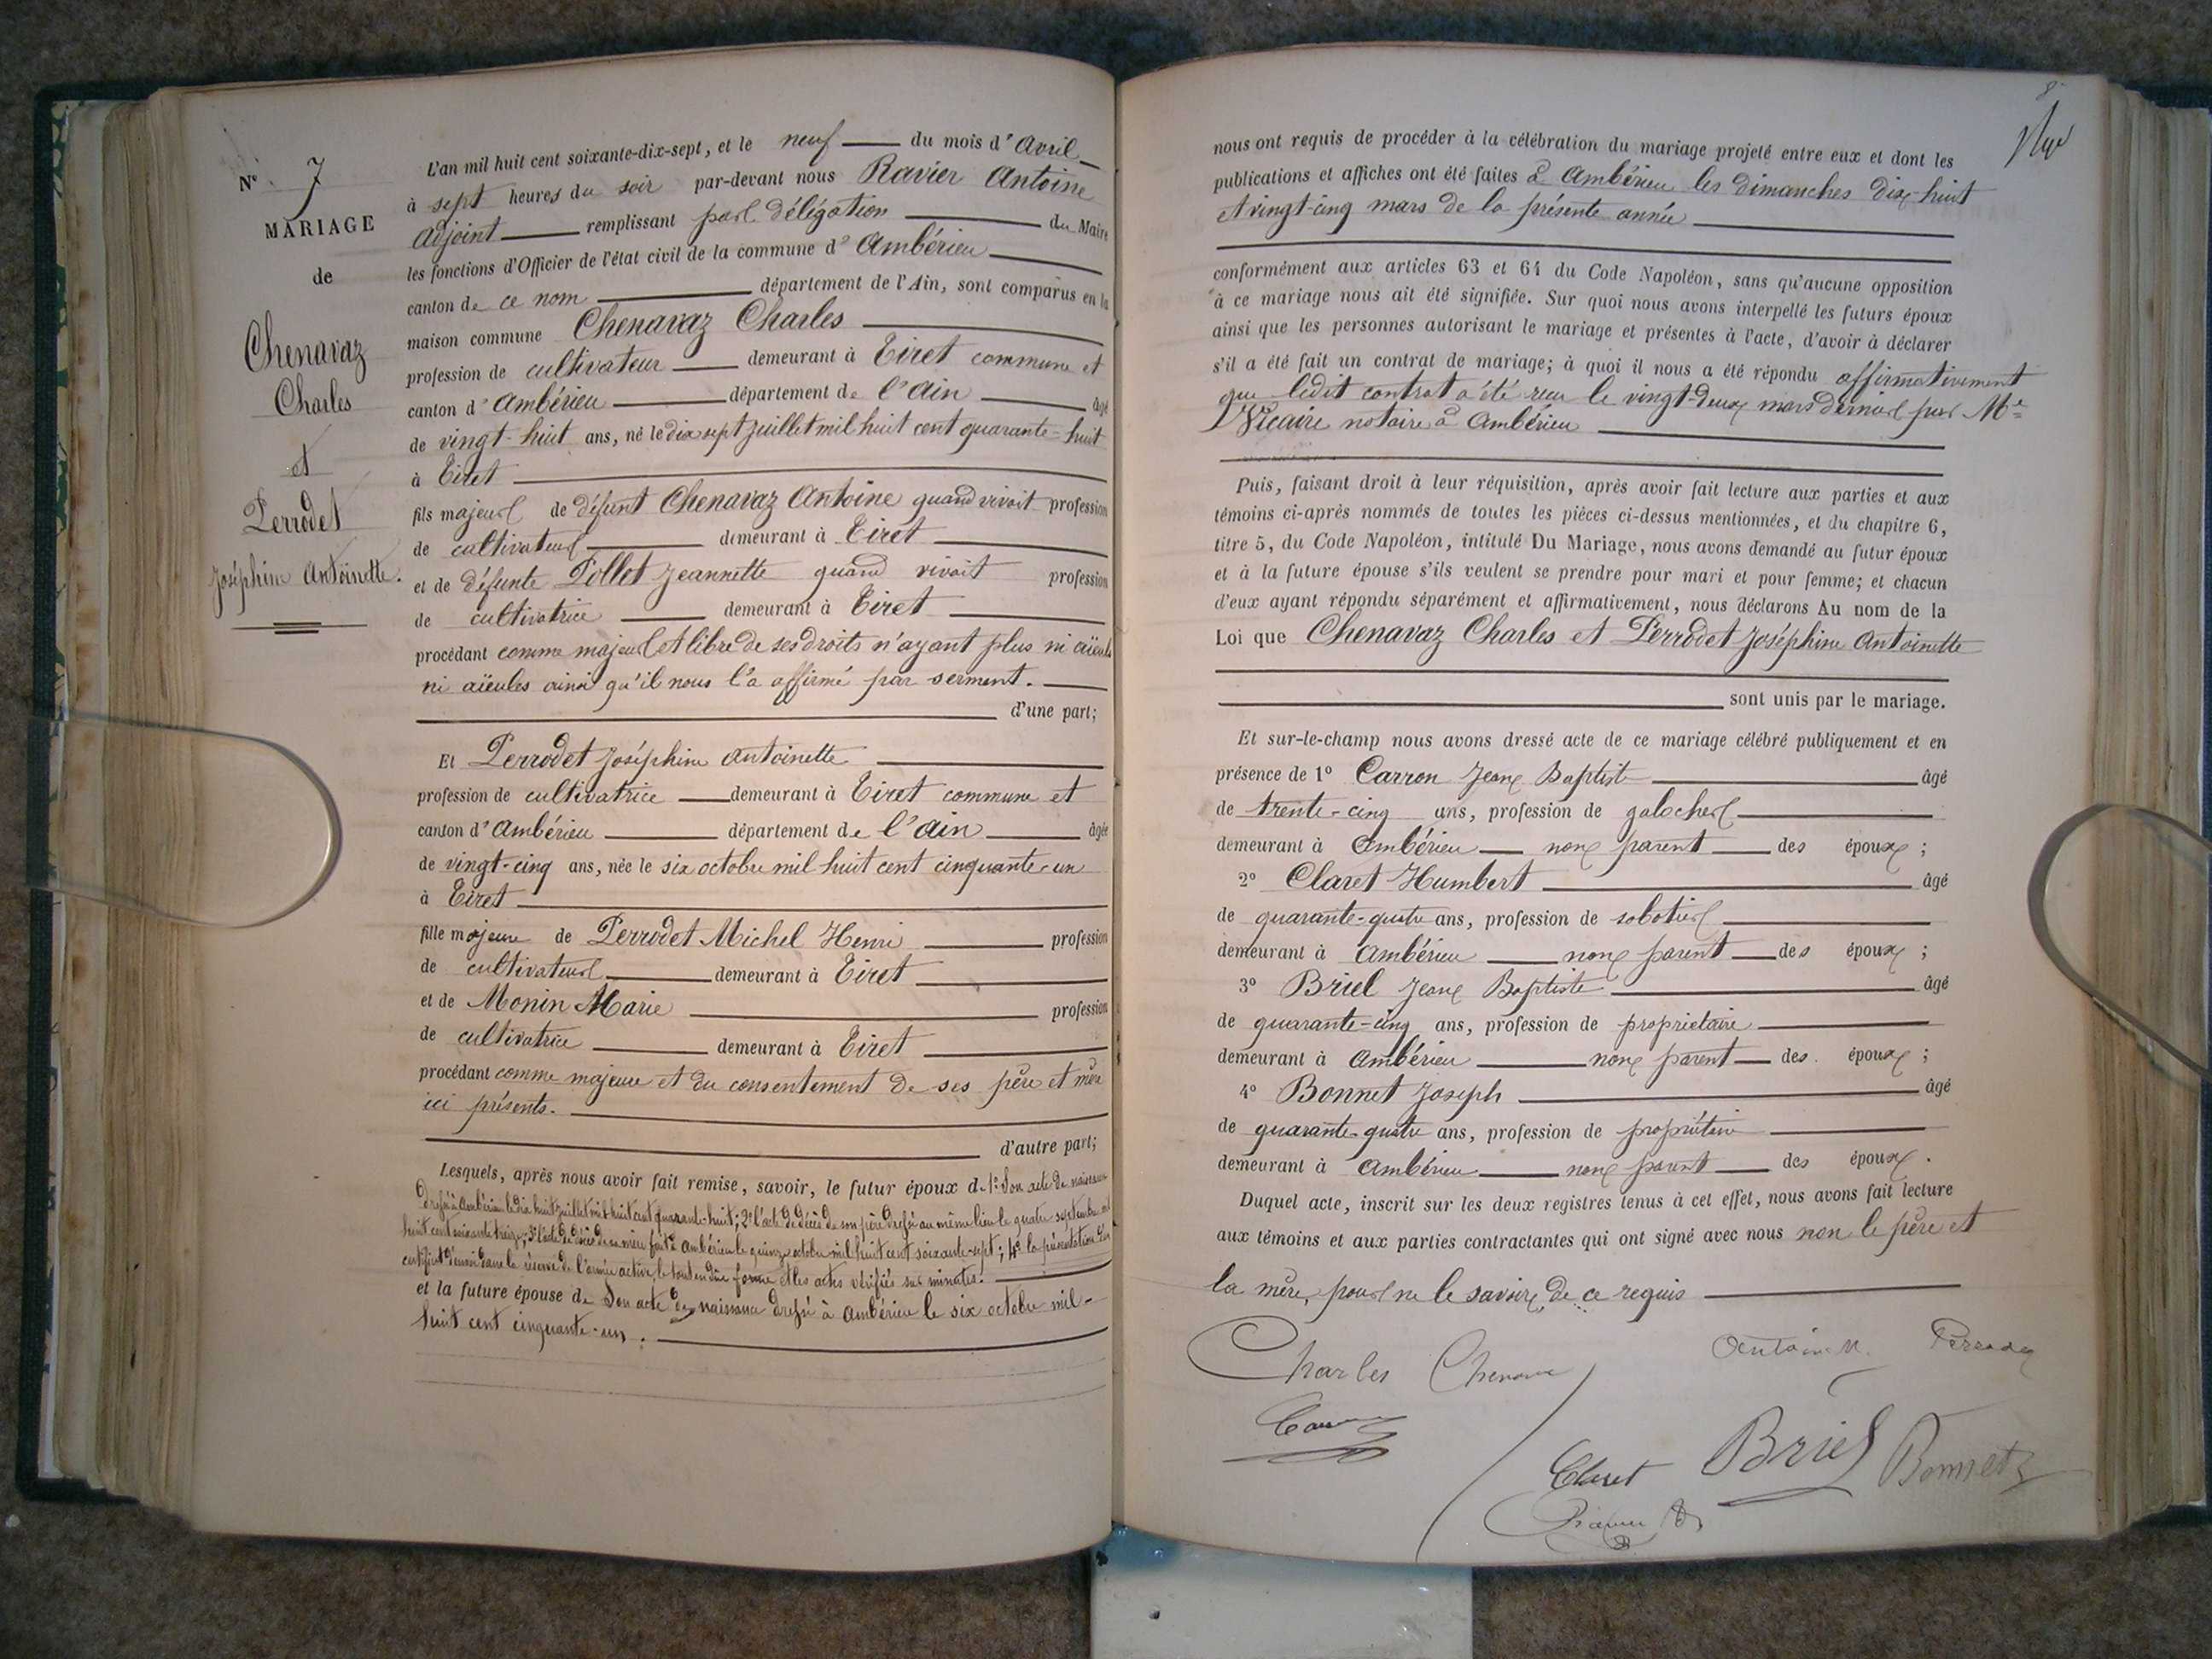 N° 7
MARIAGE
de
Chenavaz
Charles
et
Perrodet
Joséphine Antoinette.
L'an mil huit cent soixante-dix-sept, et le neuf du mois d'Avril
à sept heures du soir par-devant nous Ravier Antoine
adjoint remplissant par délégation du Maire
les fonctions d'Officier de l'état civil de la commune d'Ambérieu
canton de ce nom département de l'Ain, sont comparus en la
maison commune Chenavaz Charles
profession de cultivateur demeurant à Tiret commune et
canton d'Ambérieu département de l'Ain âgé
de vingt-huit ans, né le dix sept juillet mil huit cent quarante-huit
à Tiret
fils majeur de défunt Chenavaz Antoine quand vivait profession
de cultivateur demeurant à Tiret
et de défunte Pollet Jeannette quand vivait profession
de cultivatrice demeurant à Tiret
procédant comme majeur et libre de ses droits n'ayant plus ni aïeuls
ni aïeules ainsi qu'il nous l'a affirmé par serment.
d'une part;
Et Perrodet Joséphine Antoinette
profession de cultivatrice demeurant à Tiret commune et
canton d'Ambérieu département de l'Ain âgée
de vingt-cinq ans, née le six octobre mil huit cent cinquante-un
à Tiret
fille majeure de Perrodet Michel Henri profession
de cultivateur demeurant à Tiret
et de Monin Marie profession
de cultivatrice demeurant à Tiret
procédant comme majeure et du consentement de ses père et mère
ici présents.
d'autre part;
Lesquels, après nous avoir fait remise, savoir, le futur époux de 1° Son acte de naissance
dressé à Ambérieu le dix huit juillet mil huit cent quarante-huit; 2° l'acte de décès de son père dressé au même lieu le quatre septembre mil
huit cent soixante treize; 3° l'acte de décès de sa mère fait à Ambérieu le quinze octobre mil huit cent soixante-sept; 4° la présentation d'un
certificat d'envoi dans la réserve de l'armée active, le tout en due forme et les actes vérifiés sur minutes.
et la future épouse de Son acte de naissance dressé à Ambérieu le six octobre mil-
huit cent cinquante-un.
8
nous ont requis de procéder à la célébration du mariage projeté entre eux et dont les
publications et affiches ont été faites à Ambérieu les dimanches dix-huit
et vingt-cinq mars de la présente année
conformément aux articles 63 et 64 du Code Napoléon, sans qu'aucune opposition
à ce mariage nous ait été signifiée. Sur quoi nous avons interpellé les futurs époux
ainsi que les personnes autorisant le mariage et présentes à l'acte, d'avoir à déclarer
s'il a été fait un contrat de mariage; à quoi il nous a été répondu affirmativement
que ledit contrat a été reçu le vingt-deux mars dernier par Me
Vicaire notaire à Ambérieu
Puis, faisant droit à leur réquisition, après avoir fait lecture aux parties et aux
témoins ci-après nommés de toutes les pièces ci-dessus mentionnées, et du chapitre 6,
titre 5, du Code Napoléon, intitulé Du Mariage, nous avons demandé au futur époux
et à la future épouse s'ils veulent se prendre pour mari et pour femme; et chacun
d'eux ayant répondu séparément et affirmativement, nous déclarons Au nom de la
Loi que Chenavaz Charles et Perrodet Joséphine Antoinette
sont unis par le mariage.
Et sur-le-champ nous avons dressé acte de ce mariage célébré publiquement et en
présence de 1° Carron Jean Baptiste âgé
de trente-cinq ans, profession de galocher
demeurant à Ambérieu non parent des époux;
2° Claret Humbert âgé
de quarante-quatre ans, profession de sabotier
demeurant à Ambérieu non parent des époux;
3° Briel Jean Baptiste âgé
de quarante-cinq ans, profession de proprietaire
demeurant à Ambérieu non parent des époux;
4° Bonnet Joseph âgé
de quarante-quatre ans, profession de propriétaire
demeurant à Ambérieu non parent des époux.
Duquel acte, inscrit sur les deux registres tenus à cet effet, nous avons fait lecture
aux témoins et aux parties contractantes qui ont signé avec nous non le père et
la mère, pour ne le savoir, de ce requis
Charles Chenavaz Perrodet
Claret Briel Bonnet
Ravier